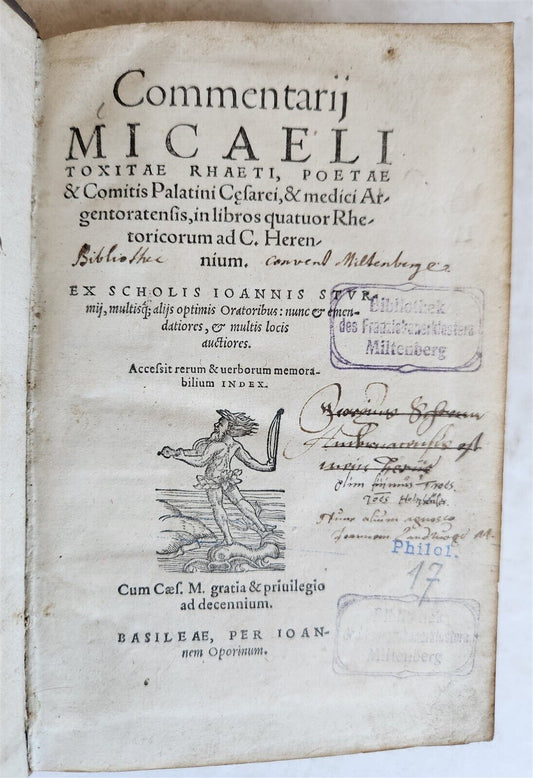 Commentarij
MICAELI
TOXITAE RHAETI, POETAE
& Comitis Palatini Cęsarei, & medici Ar-
gentoratensis, in libros quatuor Rhe-
toricorum ad C. Heren-
nium.
Bibliothec convent Miltenberge
EX SCHOLIS IOANNIS STVR-
mij, multisq; alijs optimis Oratoribus: nunc & emen-
datiores, & multis locis
auctiores.
Accessit rerum & uerborum memora-
bilium INDEX.
Bibliothek
des Franziskanerklosters
Miltenberg
est
meus
olim
Nunc alium agnosco
Joannem
Philol.
17
Cum Cæs. M. gratia & priuilegio
ad decennium.
BASILEAE, PER IOAN-
nem Oporinum.
Miltenberg